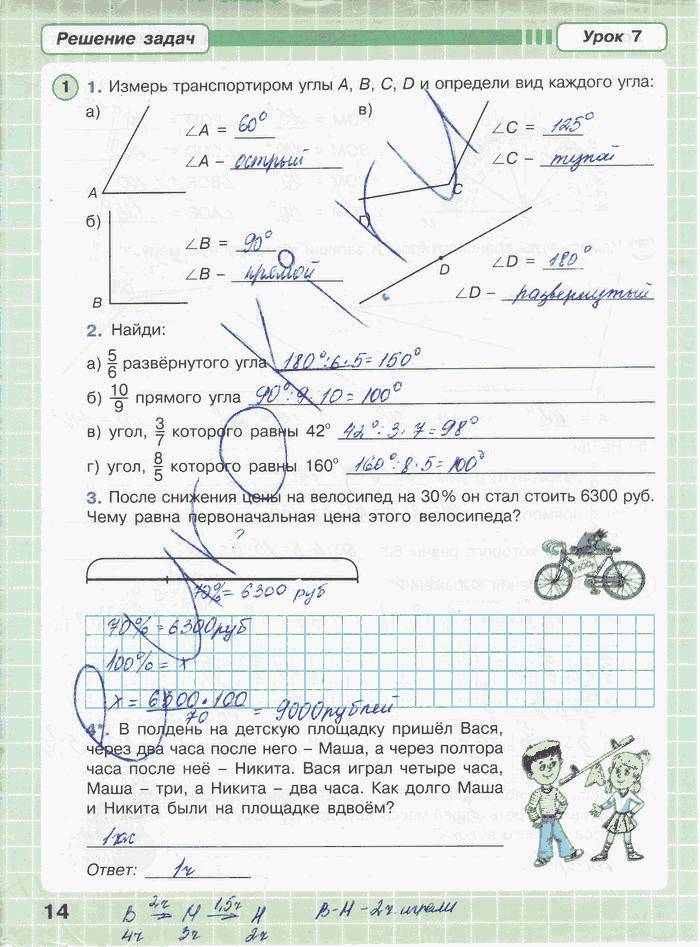 Решение задач
Урок 7
1
1. Измерь транспортиром углы A, B, C, D и определи вид каждого угла:
а)
∠A = 60°
∠A – острый
A
в)
∠C = 125°
∠C – тупой
C
б)
∠B = 90°
∠B – прямой
B
D
∠D = 180°
∠D – развернутый
2. Найди:
а) 5/6 развёрнутого угла 180°:6·5=150°
б) 10/9 прямого угла 90°:9·10=100°
в) угол, 3/7 которого равны 42° 42°:3·7=98°
г) угол, 8/5 которого равны 160° 160°:8·5=100°
3. После снижения цены на велосипед на 30% он стал стоить 6300 руб.
Чему равна первоначальная цена этого велосипеда?
?
70%= 6300 руб
70% = 6300 руб
100% = x
x = 6300·100/70 = 9000 рублей
4*. В полдень на детскую площадку пришёл Вася,
через два часа после него – Маша, а через полтора
часа после неё – Никита. Вася играл четыре часа,
Маша – три, а Никита – два часа. Как долго Маша
и Никита были на площадке вдвоём?
Ответ: 1ч
14
В 2ч М 1,5ч Н
4ч 3ч 2ч
В-Н-2ч играли